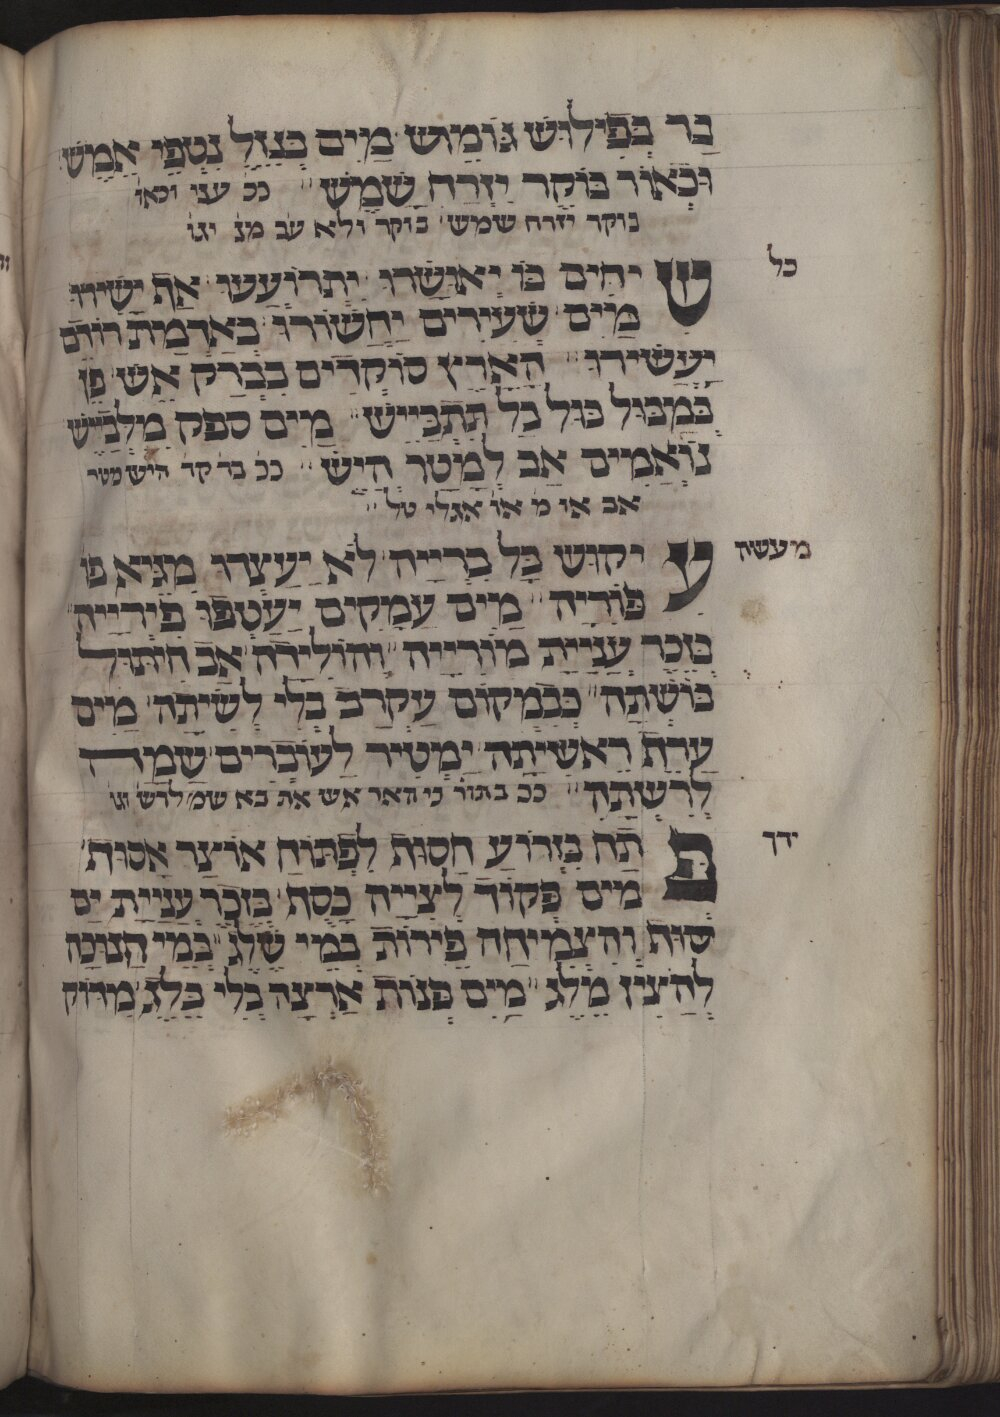 בַר בְּפִילוּשׁ גּוֹמוּשׁ מַיִם בְּנֶזֶל נִטְפֵּי אֶמֶשׁ
וּכְאוֹר בּוֹקֶר יִזְרַח שָׁמֶשׁ ככ עגו וכאו
בוקר יזרח שמש בוקר ולא עב מנ יגו
כל
שיחים בו יאושרו יתרועעו אף ישירו
מים שעירים יחשורו באדמת רודם
יעשירו הארץ סוקרים בברק אש פן
במבול בול בל תתבייש מים ספק מלביש
נואמים אב למטר היש ככ בד קד היש מטר
אב או מ או אגלי טל
מעשה
עיקוש כל ברייה לא יעצרו מגיא פו
פוריה מים עמקים יעטפו פירייה
בזכר עניית מורייה והולידה אב חיתול
בושתה כבמקום עקרב בלי לשיתה מים
ערת ראשיתה ימטיר לעוברים שמה
לרשתה ככ בתור כי האר אש את בא שמ לרש וגו
ידך
פתח כזרוע חסות לפתוח אוצר אסות
מים פקוד לצייה כסת בזכר עניית ים
סות והצמיחה פירות במי שלג במי חנוכה
להציץ מלג מים פנות ארצה בלי בלג מדוק